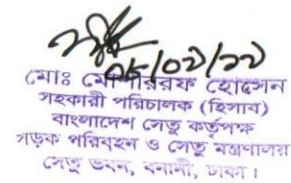 ০৮/০২/১১
মোঃ মোশাররফ হোসেন
সহকারী পরিচালক (হিসাব)
বাংলাদেশ সেতু কর্তৃপক্ষ
সড়ক পরিবহন ও সেতু মন্ত্রণালয়
সেতু ভবন, বনানী, ঢাকা।